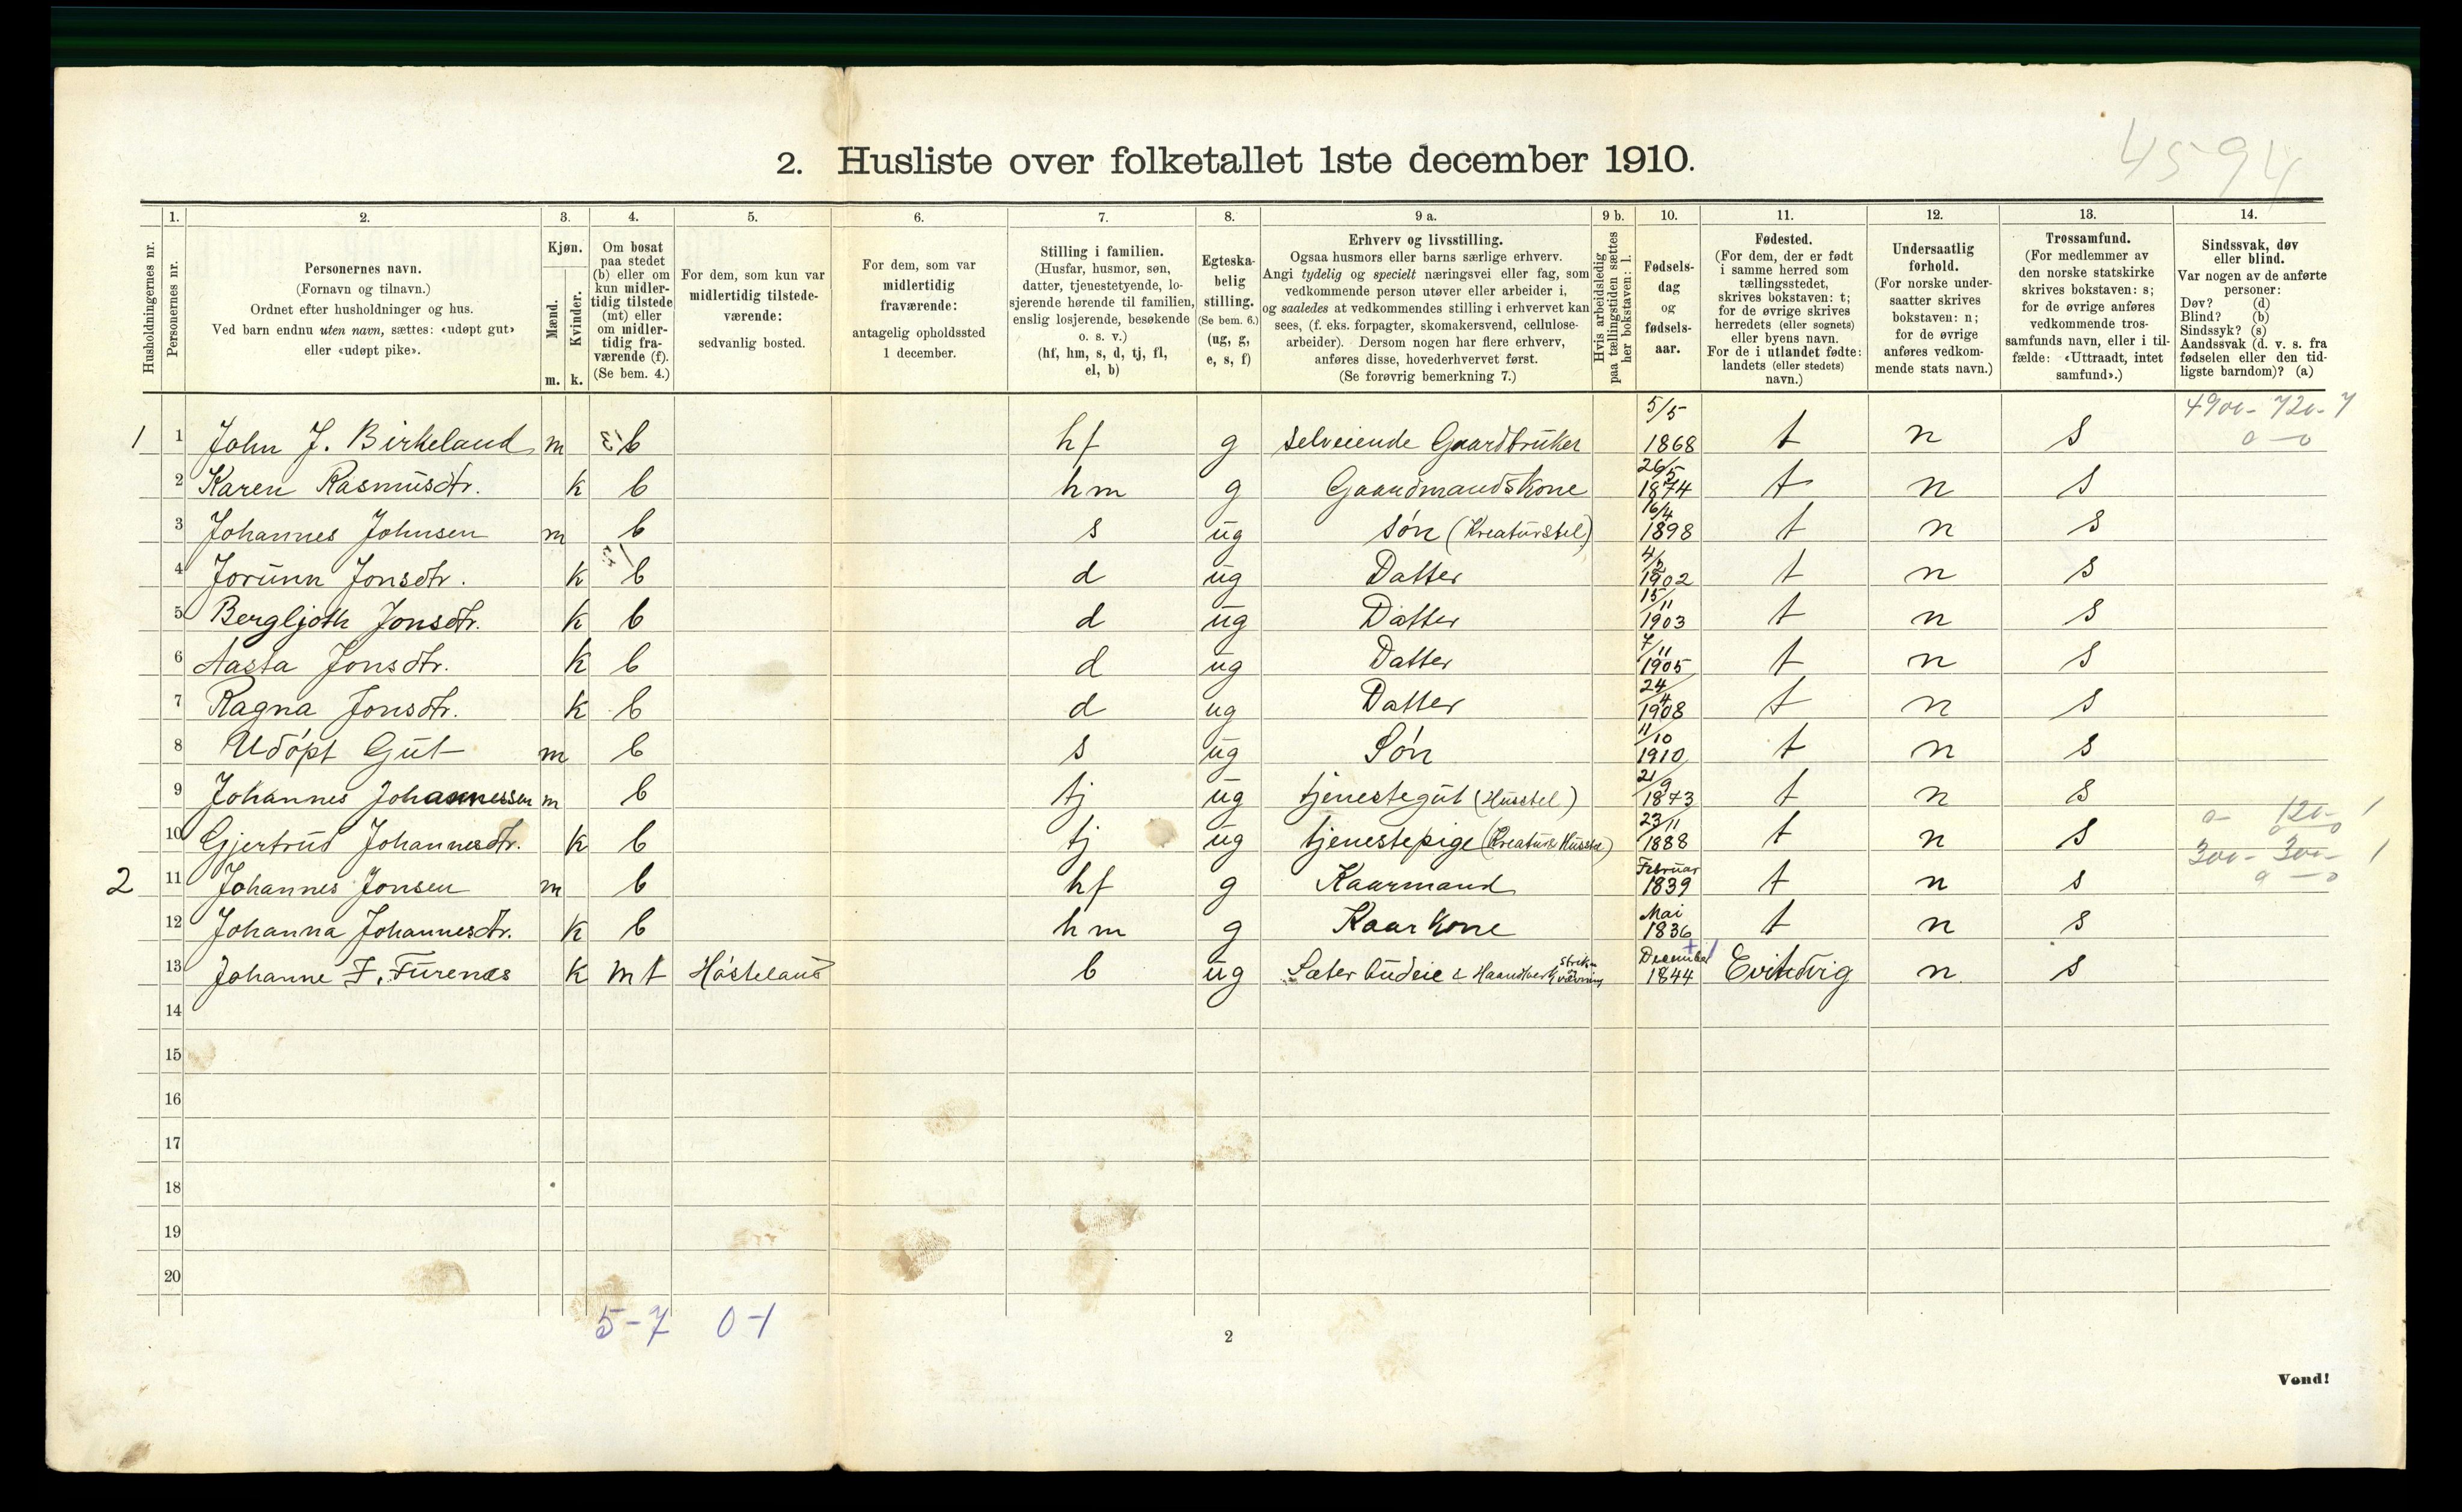 4594
2. Husliste over folketallet 1ste december 1910.
Husholdningernes nr.
1.
Personernes nr.
2.
Personernes navn.
(Fornavn og tilnavn.)
Ordnet efter husholdninger og hus.
Ved barn endnu uten navn, sættes: «udøpt gut»
eller «udøpt pike».
3.
Kjøn.
Mænd.
Kvinder.
m. k.
4.
Om bosat
paa stedet
(b) eller om
kun midler-
tidig tilstede
(mt) eller
om midler-
tidig fra-
værende (f).
(Se bem. 4.)
5.
For dem, som kun var
midlertidig tilstede-
værende:
sedvanlig bosted.
6.
For dem, som var
midlertidig
fraværende:
antagelig opholdssted
1 december.
7.
Stilling i familien.
(Husfar, husmor, søn,
datter, tjenestetyende, lo-
sjerende hørende til familien,
enslig losjerende, besøkende
o. s. v.)
(hf, hm, s, d, tj, fl,
el, b)
8.
Egteska-
belig
stilling.
(Se bem. 6.)
(ug, g,
e, s, f)
9 a.
Erhverv og livsstilling.
Ogsaa husmors eller barns særlige erhverv.
Angi tydelig og specielt næringsvei eller fag, som
vedkommende person utøver eller arbeider i,
og saaledes at vedkommendes stilling i erhvervet kan
sees, (f. eks. forpagter, skomakersvend, cellulose-
arbeider). Dersom nogen har flere erhverv,
anføres disse, hovederhvervet først.
(Se forøvrig bemerkning 7.)
9 b.
Hvis arbeidsledig
paa tællingstiden sættes
her bokstaven: l.
10.
Fødsels-
dag
og
fødsels-
aar.
11.
Fødested.
(For dem, der er født
i samme herred som
tællingsstedet,
skrives bokstaven: t;
for de øvrige skrives
herredets (eller sognets)
eller byens navn.
For de i utlandet fødte:
landets (eller stedets)
navn.)
12.
Undersaatlig
forhold.
(For norske under-
saatter skrives
bokstaven: n;
for de øvrige
anføres vedkom-
mende stats navn.)
13.
Trossamfund.
(For medlemmer av
den norske statskirke
skrives bokstaven: s;
for de øvrige anføres
vedkommende tros-
samfunds navn, eller i til-
fælde: «Uttraadt, intet
samfund».)
14.
Sindssvak, døv
eller blind.
Var nogen av de anførte
personer:
Døv? (d)
Blind? (b)
Sindssyk? (s)
Aandssvak (d. v. s. fra
fødselen eller den tid-
ligste barndom)? (a)
4900- 720- 7
0-0
1 1 John J. Birkeland m b hf g selveiende Gaardbruker 5/5 1868 t n s
2 Karen Rasmusdtr. k b hm g Gaardmandskone 26/5 1874 t n s
3 Johannes Johnsen m b s ug søn (Kreaturstel) 16/4 1898 t n s
4 Jorunn Jonsdtr. k b d ug Datter 4/2 1902 t n s
5 Bergljoth Jonsdtr. k b d ug Datter 15/11 1903 t n s
6 Aasta Jonsdtr. k b d ug Datter 7/11 1905 t n s
7 Ragna Jonsdtr. k b d ug Datter 24/4 1908 t n s
8 Udøpt Gut m b s ug Søn 11/10 1910 t n s
9 Johannes Johannessen m b tj ug tjenestegut (Husstel) 21/9 1873 t n s
0- 120- 1
0-0
10 Gjertrud Johannesdtr. k b tj ug tjenestepige (Kreatur & Husstel) 23/11 1888 t n s
300- 300- 1
0-0
2 11 Johannes Jonsen m b hf g Kaarmand Februar 1839 t n s
12 Johanna Johannesdtr. k b hm g Kaarkone Mai 1836 t n s
13 Johanne F. Furenes k mt Høsteland b ug & Haandverk December 1844 Evindvig n s
14
15
16
17
18
19
20
5-7 0-1
2
Vend!